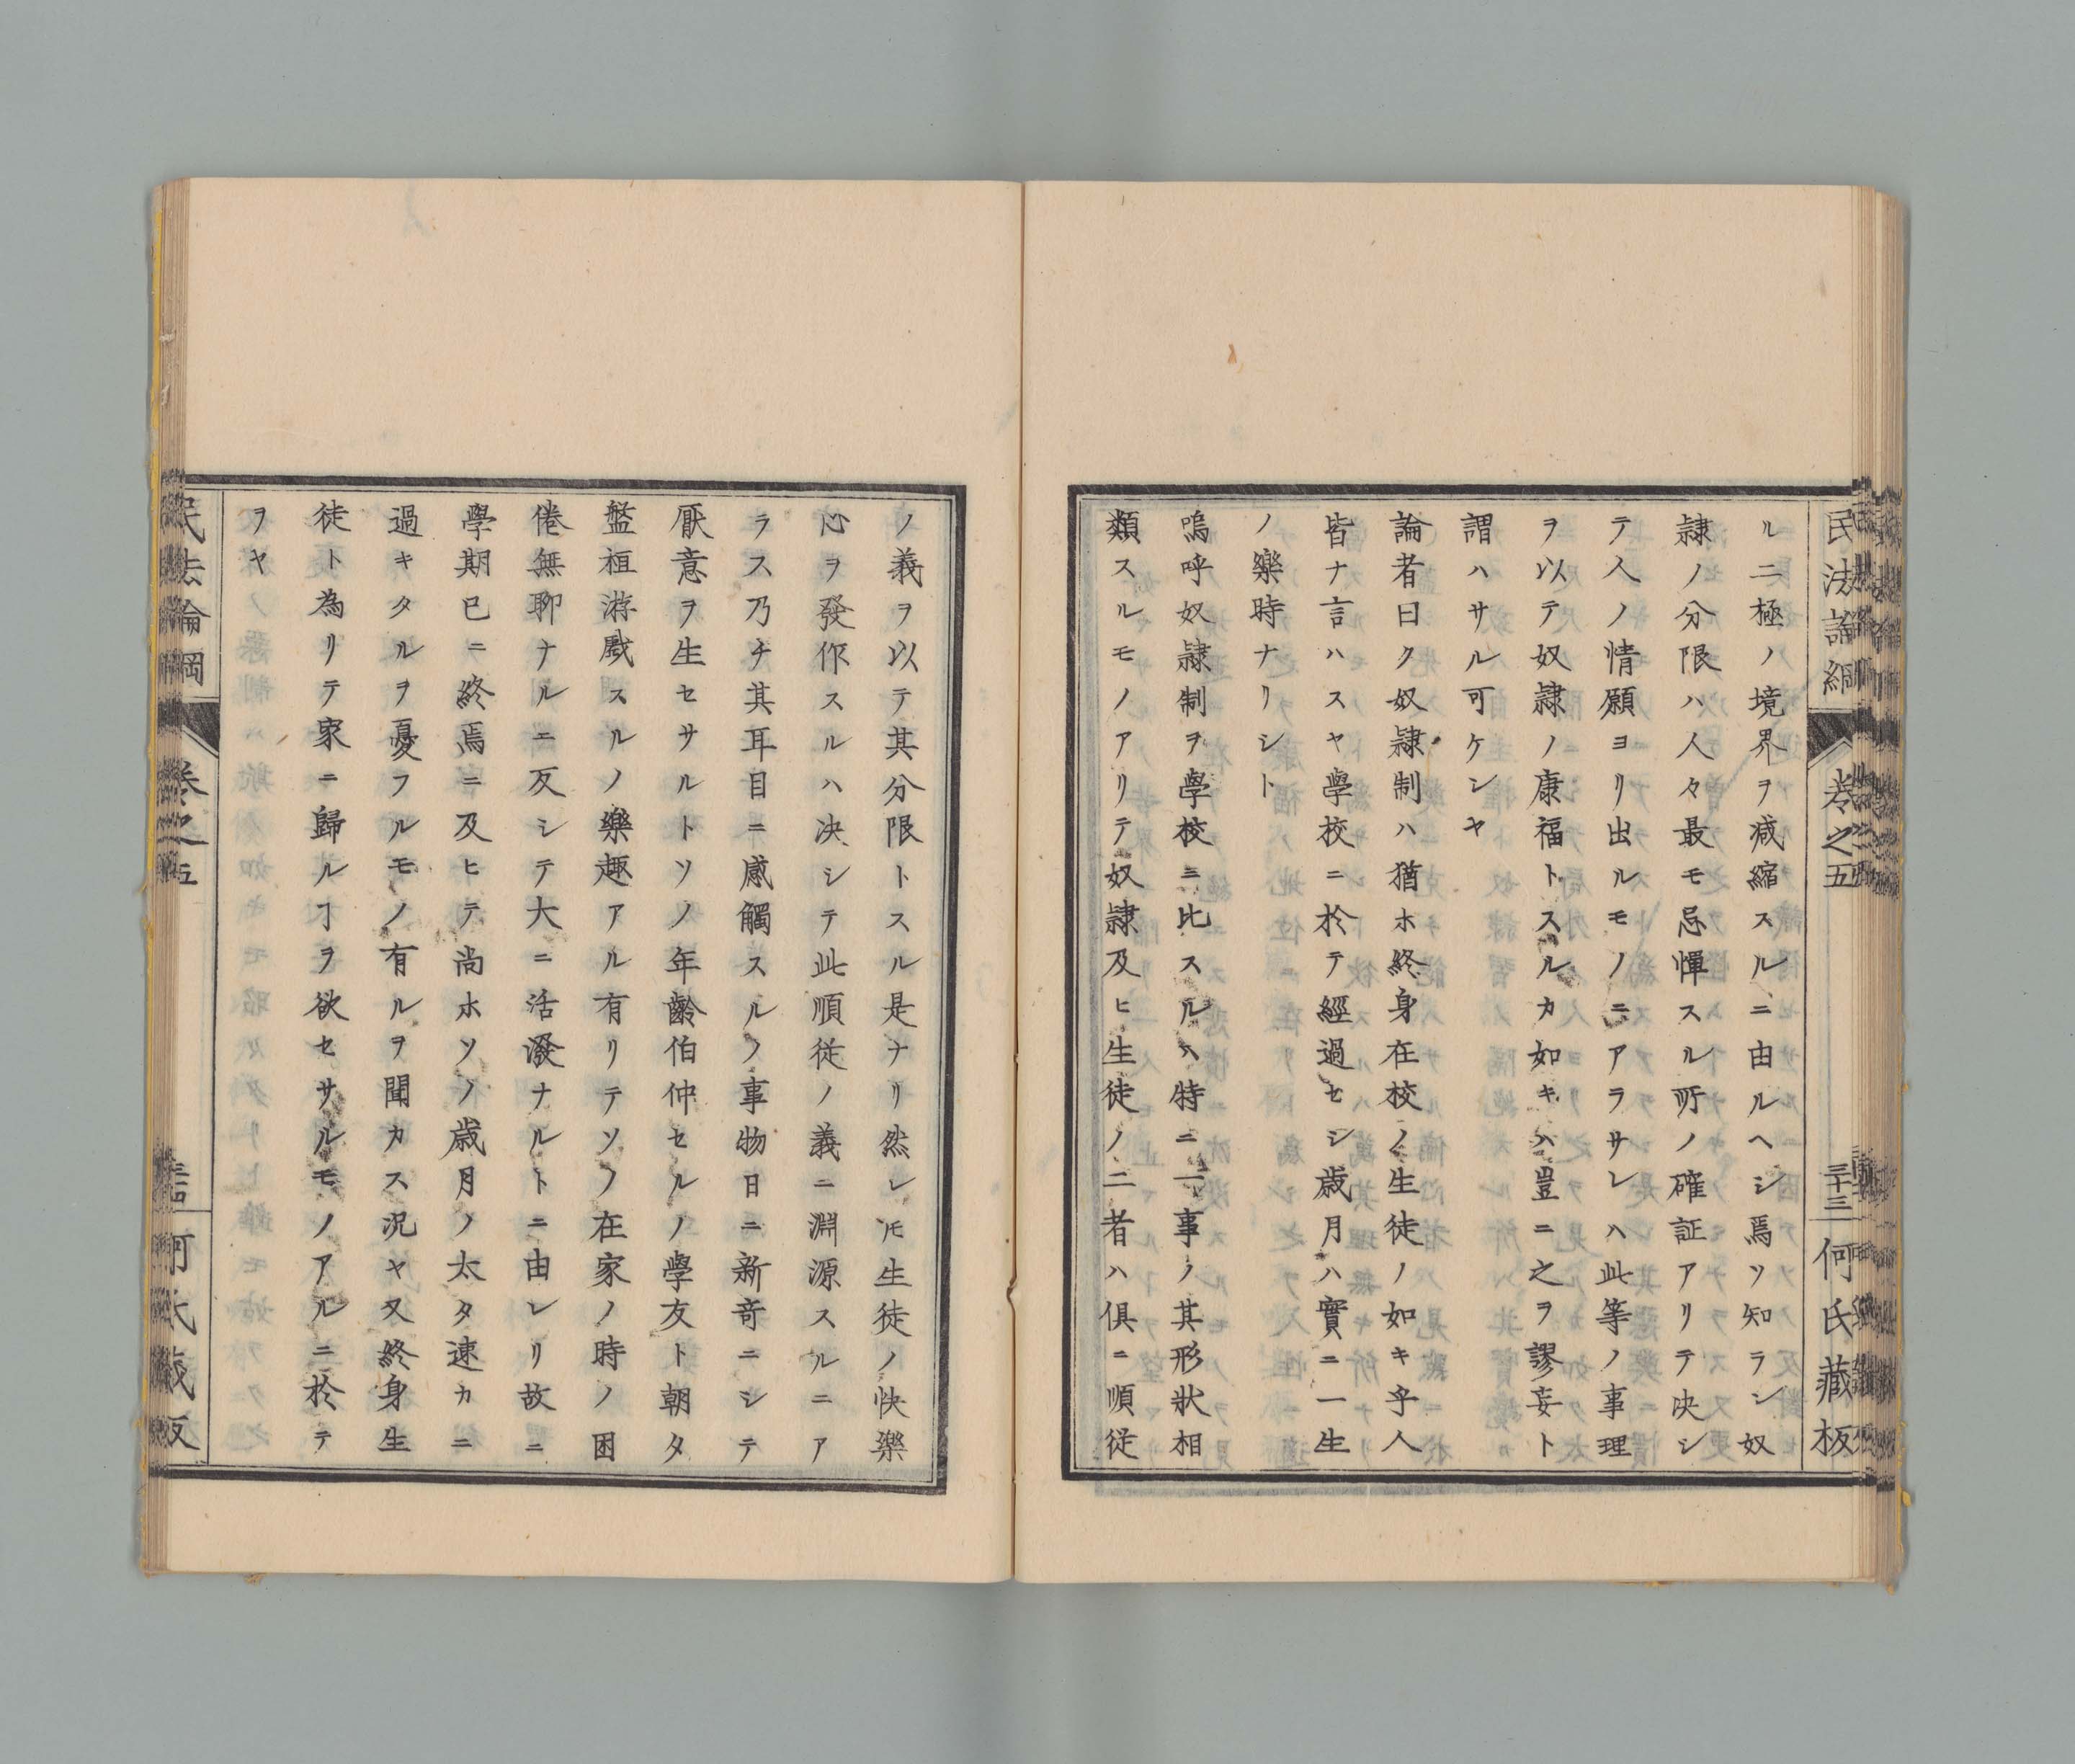 民法論綱 卷之五 三十三 何氏藏板
ル二極ノ境界ヲ減縮スルニ由ルヘシ焉ソ知ラン奴
隷ノ分限ハ人々最モ忌憚スル所ノ確証アリテ决シ
テ人ノ情願ヨリ出ルモノニアラサレハ此等ノ事理
ヲ以テ奴隷ノ康福トスルカ如キハ豈ニ之ヲ謬妄ト
謂ハサル可ケンヤ
論者曰ク奴隷制ハ猶ホ終身在校ノ生徒ノ如キ乎人
皆ナ言ハスヤ學校ニ於テ經過セシ歳月ハ實ニ一生
ノ樂時ナリシト
嗚呼奴隷制ヲ學校ニ比スルハ特ニ一事ノ其形狀相
類スルモノアリテ奴隷及ヒ生徒ノ二者ハ俱ニ順従
ノ義ヲ以テ其分限トスル是ナリ然レ𪜈生徒ノ快樂
心ヲ發作スルハ决シテ此順従ノ義ニ淵源スルニア
ラス乃チ其耳目ニ感觸スルノ事物日ニ新奇ニシテ
厭意ヲ生セサルトソノ年齡伯仲セルノ學友ト朝タ
盤桓游戲スルノ樂趣アル有リテソノ在家ノ時ノ困
倦無聊ナルニ反シテ大ニ活潑ナルトニ由レリ故ニ
學期已ニ終焉ニ及ヒテ尚ホソノ歳月ノ太タ速カニ
過キタルヲ憂フルモノ有ルヲ聞カス况ヤ又終身生
徒ト為リテ家ニ歸ルヿヲ欲セサルモノアルニ於テ
ヲヤ
民法論綱 卷之五 何氏藏板